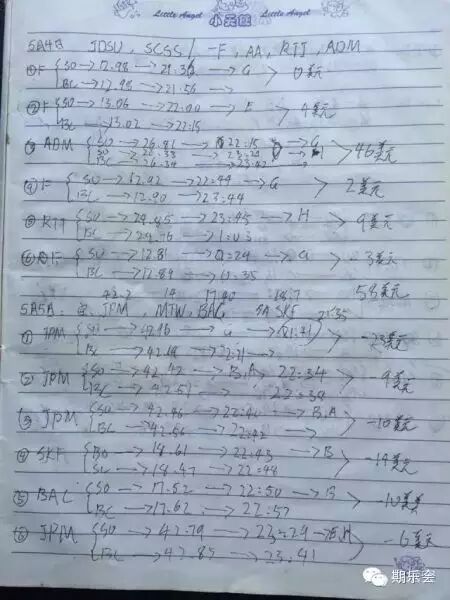 Little Angel 小天使 Little Angel
5月4日 JDSU, SCSS / -F, AA, RIT, ADM
① F SO → 12.98 → 21:36 → G > 0美元
BC → 12.98 → 21:56 →
② F SO → 13.06 → 22:00 → F > 4美元
BC → 13.02 → 22:15
③ ADM SO → 26.81 → 22:15 → G > 46美元
BC → 26.34 →
④ F SO → 12.92 → 22:49 → G > 2美元
BC → 12.90 → 23:44
⑤ RIT SO → 24.85 → 23:45 → H > 9美元
BC → 24.76 → 1:03
⑥ F SO → 12.81 → 0:24 → G > -3美元
BC → 12.84 → 0:35
58美元
5月5日: JPM, MTW, BAC, SKF 21:35
① JPM → G > -23美元
BC → 42.18 →
② JPM SO → 42.42 → B,A 22:34 > -9美元
BC → 42.51 → 22:38
③ JPM SO → 42.46 → 22:40 → B,A > -10美元
BC → 42.56 → 22:42 →
④ SKF BO → 18.61 → 22:43 → B > -14美元
SC → 18.47 → 22:48
⑤ BAC SO → 17.52 → 22:50 → B > -10美美
BC → 17.62 → 22:57
⑥ JPM SO → 42.79 → 23:29 → E,H > -6美元
BC → 42.85 → 23:41
期乐会